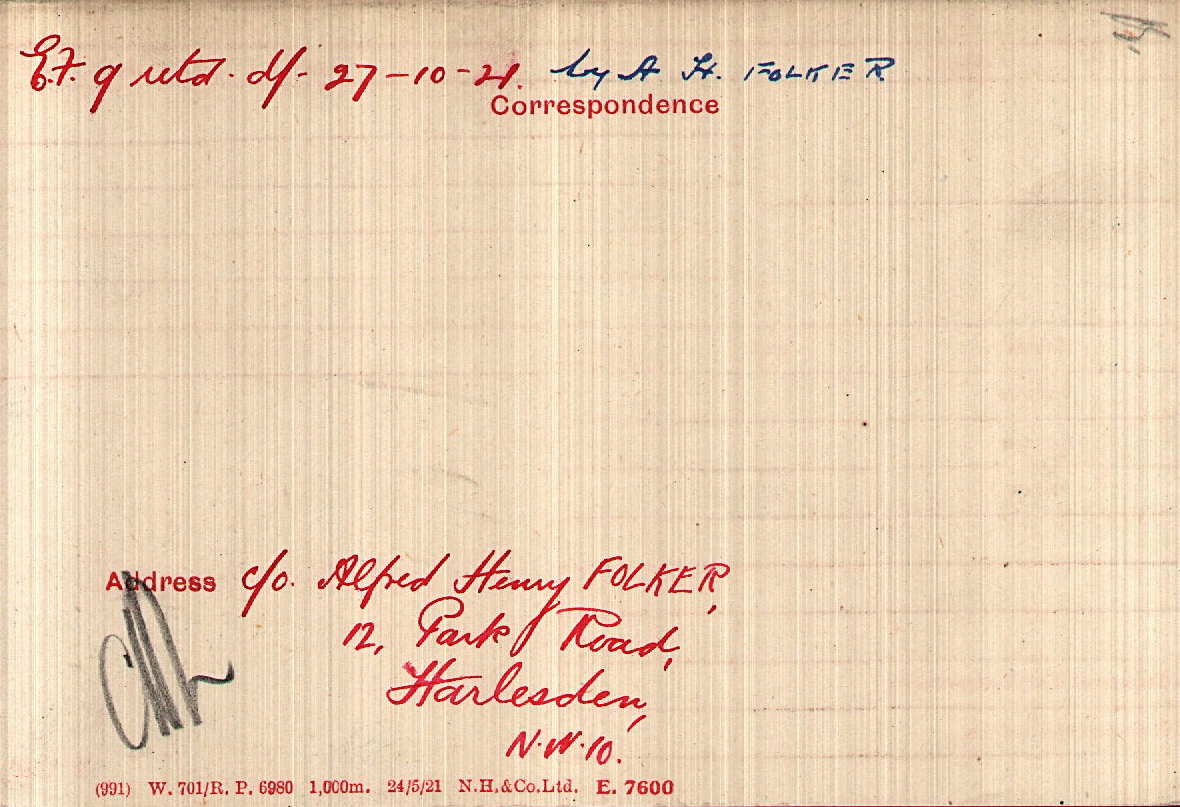 E.F. 9 retd. df. 27-10-21. by A H. FOLKER
Correspondence
Address c/o. Alfred Henry FOLKER,
12, Park Road,
Harlesden,
N.W.10.
(991) W. 701/R. P. 6980 1,000m. 24/5/21 N.H.&Co.Ltd. E. 7600